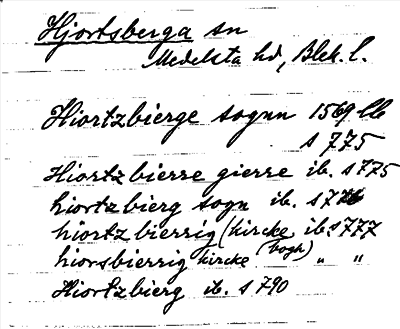 Hjortsberga sn
Medelsta hd, Blek. l.
Hiortzbierge sognn 1569 lb
s 775
Hiortz bierre gierre ib. s 775
hiortzbierg sogn ib. s 776
hiortz bierrig (kircke ib. s 777
hiorsbierrig kircke (bogh) " "
Hiortzbierg ib. s 790